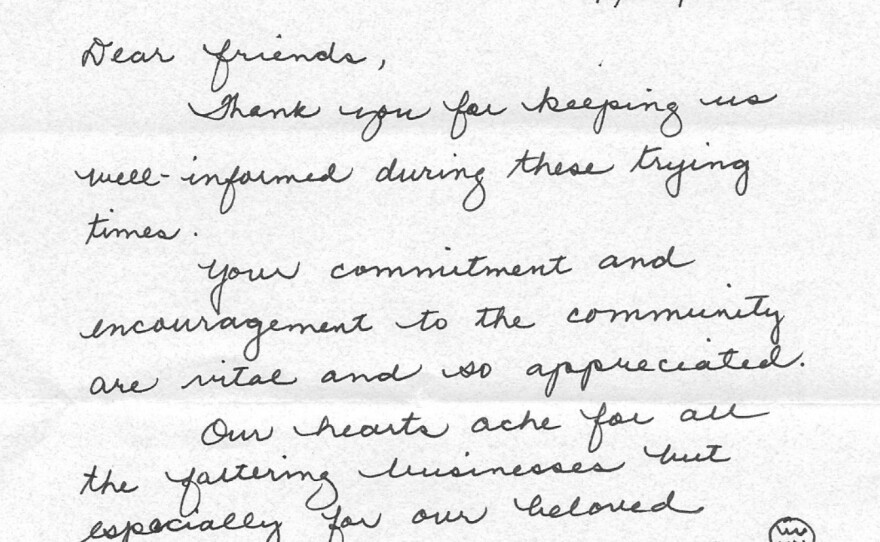 Dear friends,
Thank you for keeping us
well-informed during these trying
times.
Your commitment and
encouragement to the community
are vital and so appreciated.
Our hearts ache for all
the faltering businesses but
especially for our beloved